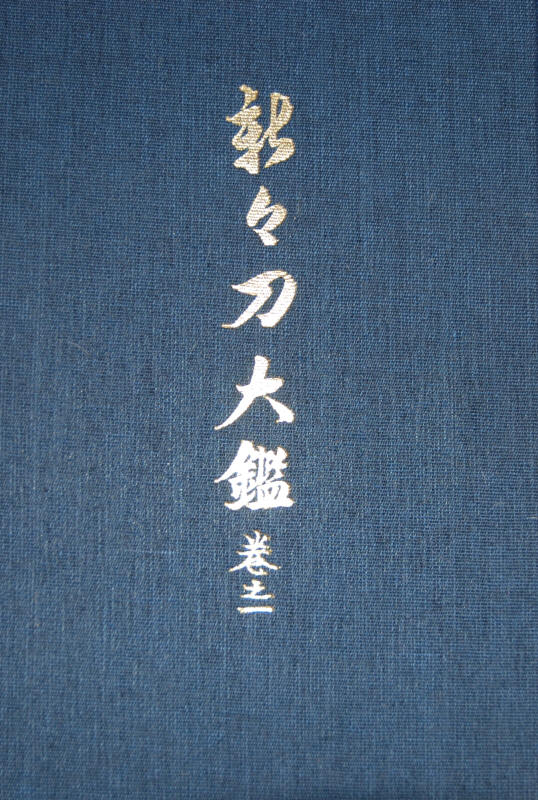 新々刀大鑑 巻之一